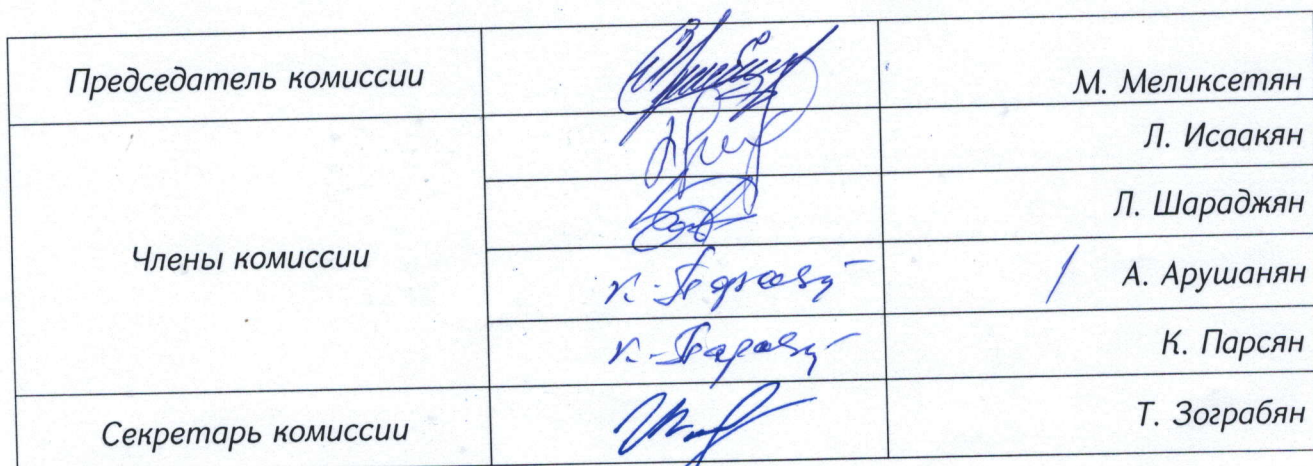 Председатель комиссии
М. Меликсетян
Члены комиссии
Л. Исаакян
Л. Шараджян
/ А. Арушанян
К. Парсян
Секретарь комиссии
Т. Зограбян